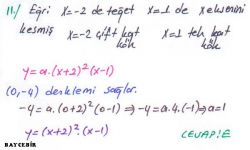 11./ Eğri x=-2 de teğet x=1 de x eksenini
kesmiş x=-2 çift kat kök x=1 tek kat kök
y=a.(x+2)²(x-1)
(0,-4) denklemi sağlar.
-4=a.(0+2)²(0-1) ⇒ -4=a.4.(-1) ⇒ a=1
y=(x+2)²(x-1)
CEVAP: E
BAYCEBİR